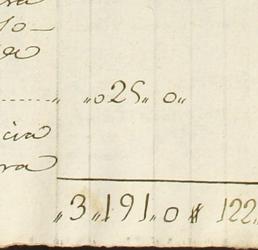 ra
to-
de
„ „025„ 0„
cia
ra
„3„191„0 122„